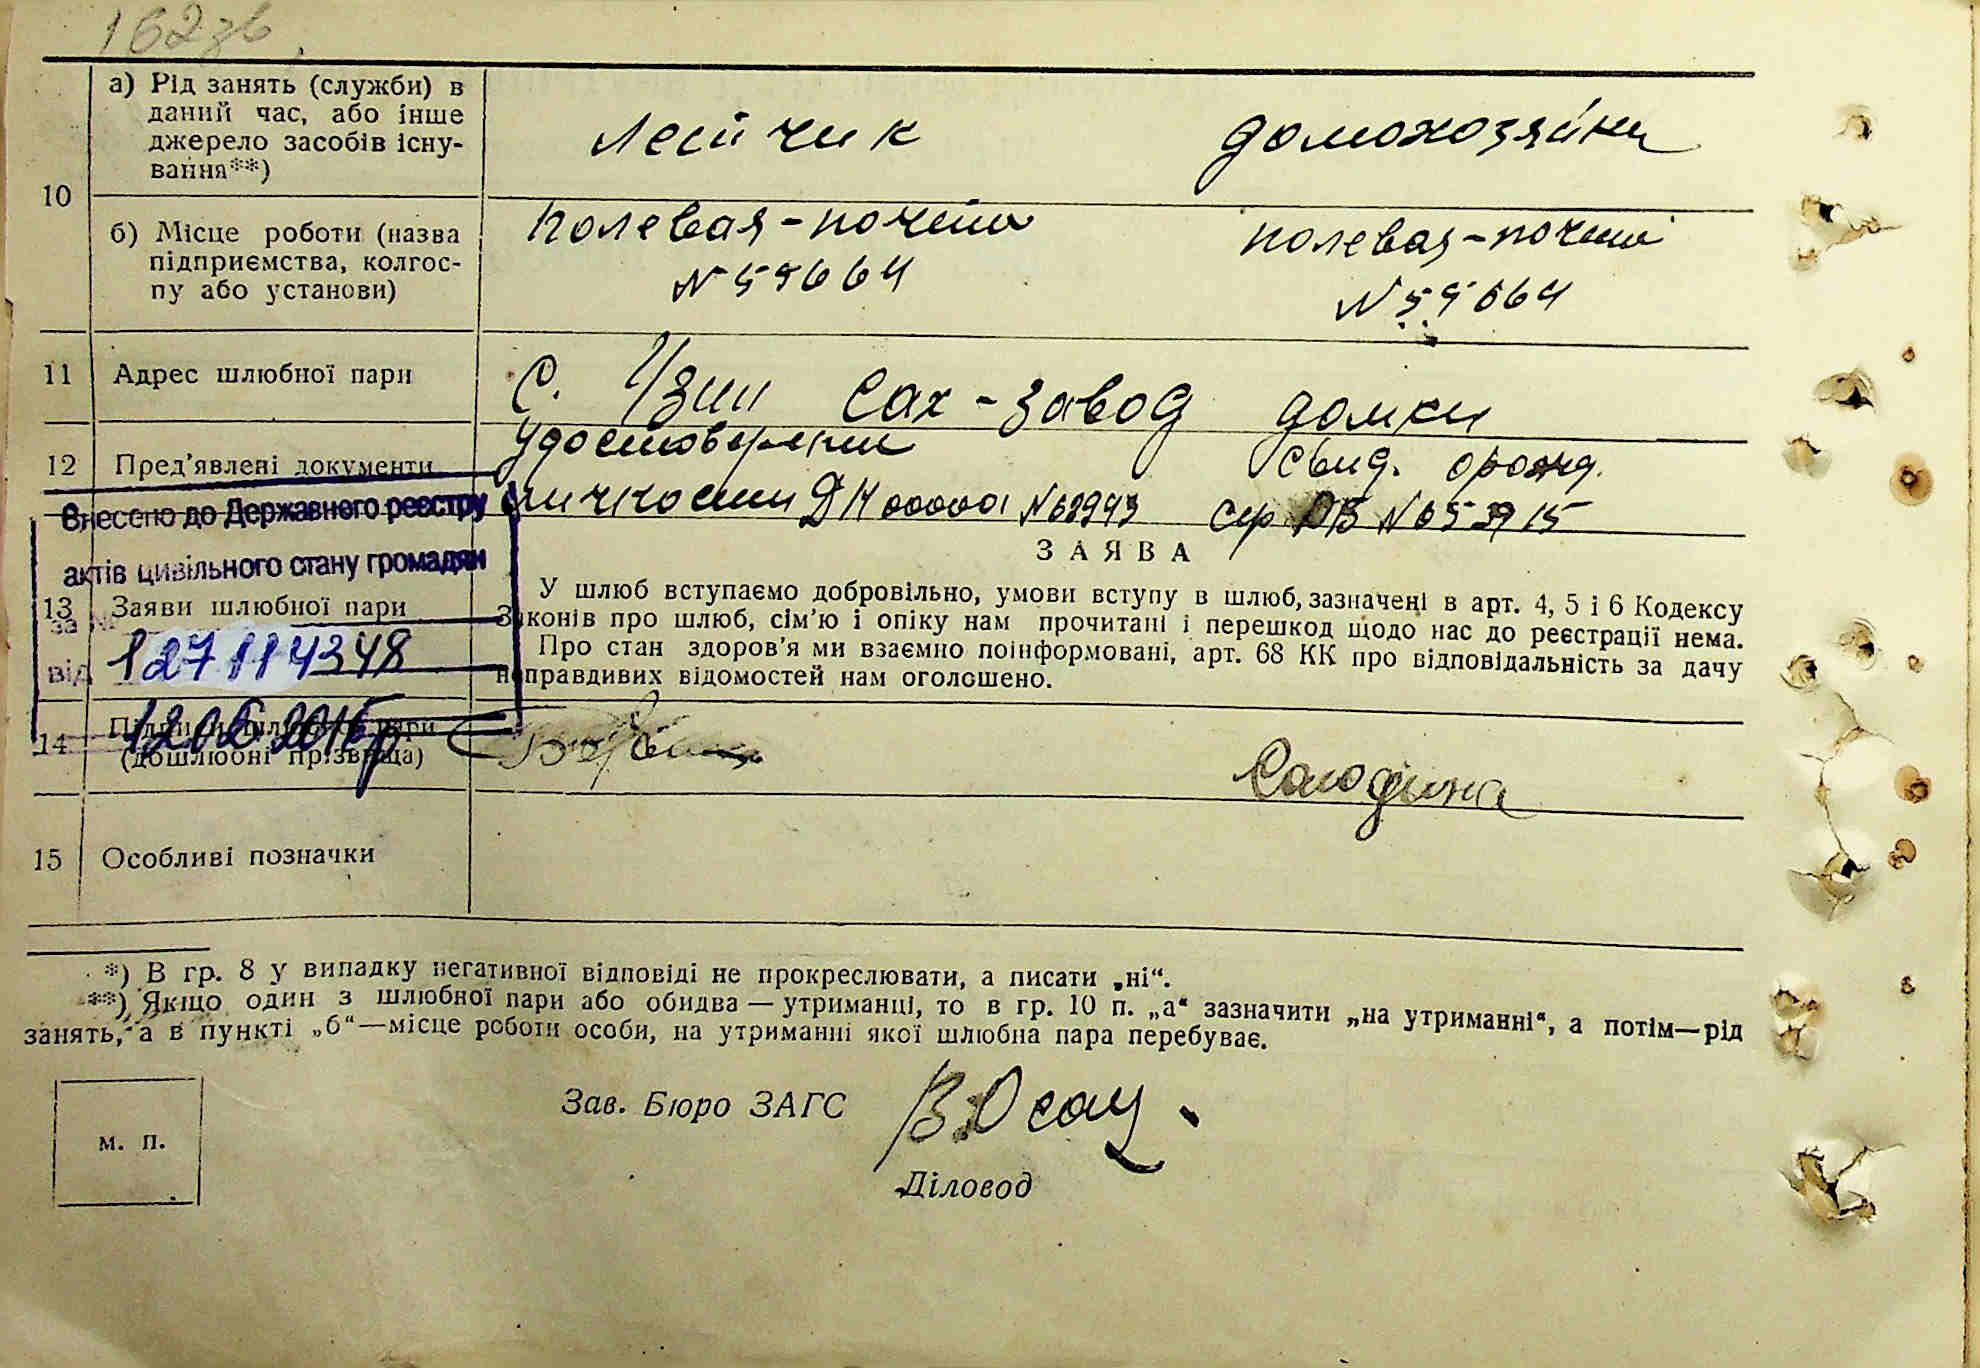 162 зв
а) Рід занять (служби) в
даний час, або інше
джерело засобів існу-
вання**)
летчик
домохозяйки
10
б) Місце роботи (назва
підприємства, колгос-
пу або установи)
полевая-почта
№ 59664
полевая-почта
№ 59664
11 Адрес шлюбної пари
с. Узин Сах-завод домки
12 Пред'явлені документи
Удостоверении
личности ДН 00000 № 62943
Свид. о рожд.
сер № 653915
Внесено до Державного реєстру
актів цивільного стану громадян
за №
127114348
від
12.05.2016р
ЗАЯВА
13 Заяви шлюбної пари
У шлюб вступаємо добровільно, умови вступу в шлюб, зазначені в арт. 4, 5 і 6 Кодексу
Законів про шлюб, сім'ю і опіку нам прочитані і перешкод щодо нас до реєстрації нема.
Про стан здоров'я ми взаємно поінформовані, арт. 68 КК про відповідальність за дачу
неправдивих відомостей нам оголошено.
14 Підписи шлюбної пари
(дошлюбні прізвища)
15 Особливі позначки
*) В гр. 8 у випадку негативної відповіді не прокреслювати, а писати „ні“.
**) Якщо один з шлюбної пари або обидва — утриманці, то в гр. 10 п. „а“ зазначити „на утриманні“, а потім—рід
занять, а в пункті „б“—місце роботи особи, на утриманні якої шлюбна пара перебуває.
м. п.
Зав. Бюро ЗАГС
Діловод